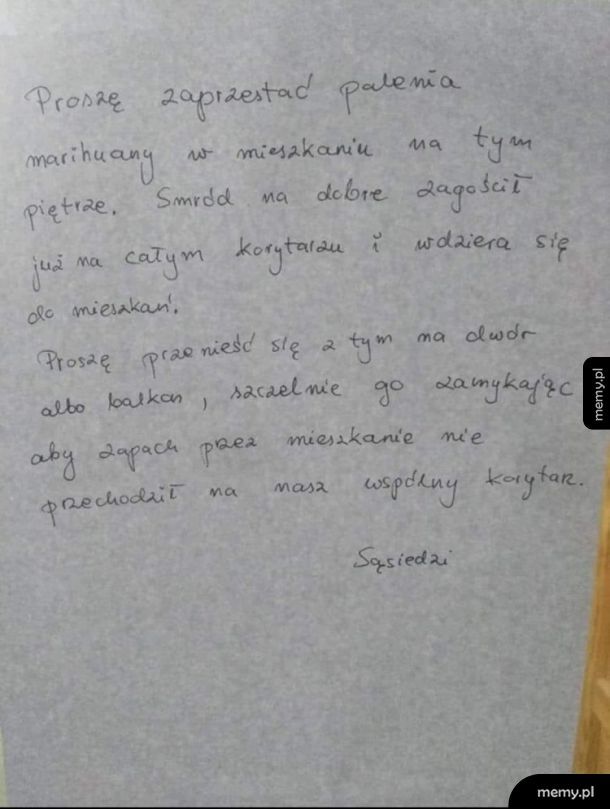 Proszę zaprzestać palenia
marihuany w mieszkaniu na tym
piętrze. Smród na dobre zagościł
już na całym korytarzu i wdziera się
do mieszkań.
Proszę przenieść się z tym na dwór
albo balkon, szczelnie go zamykając
aby zapach przez mieszkanie nie
przechodził na nasz wspólny korytarz.
Sąsiedzi
memy.pl
memy.pl